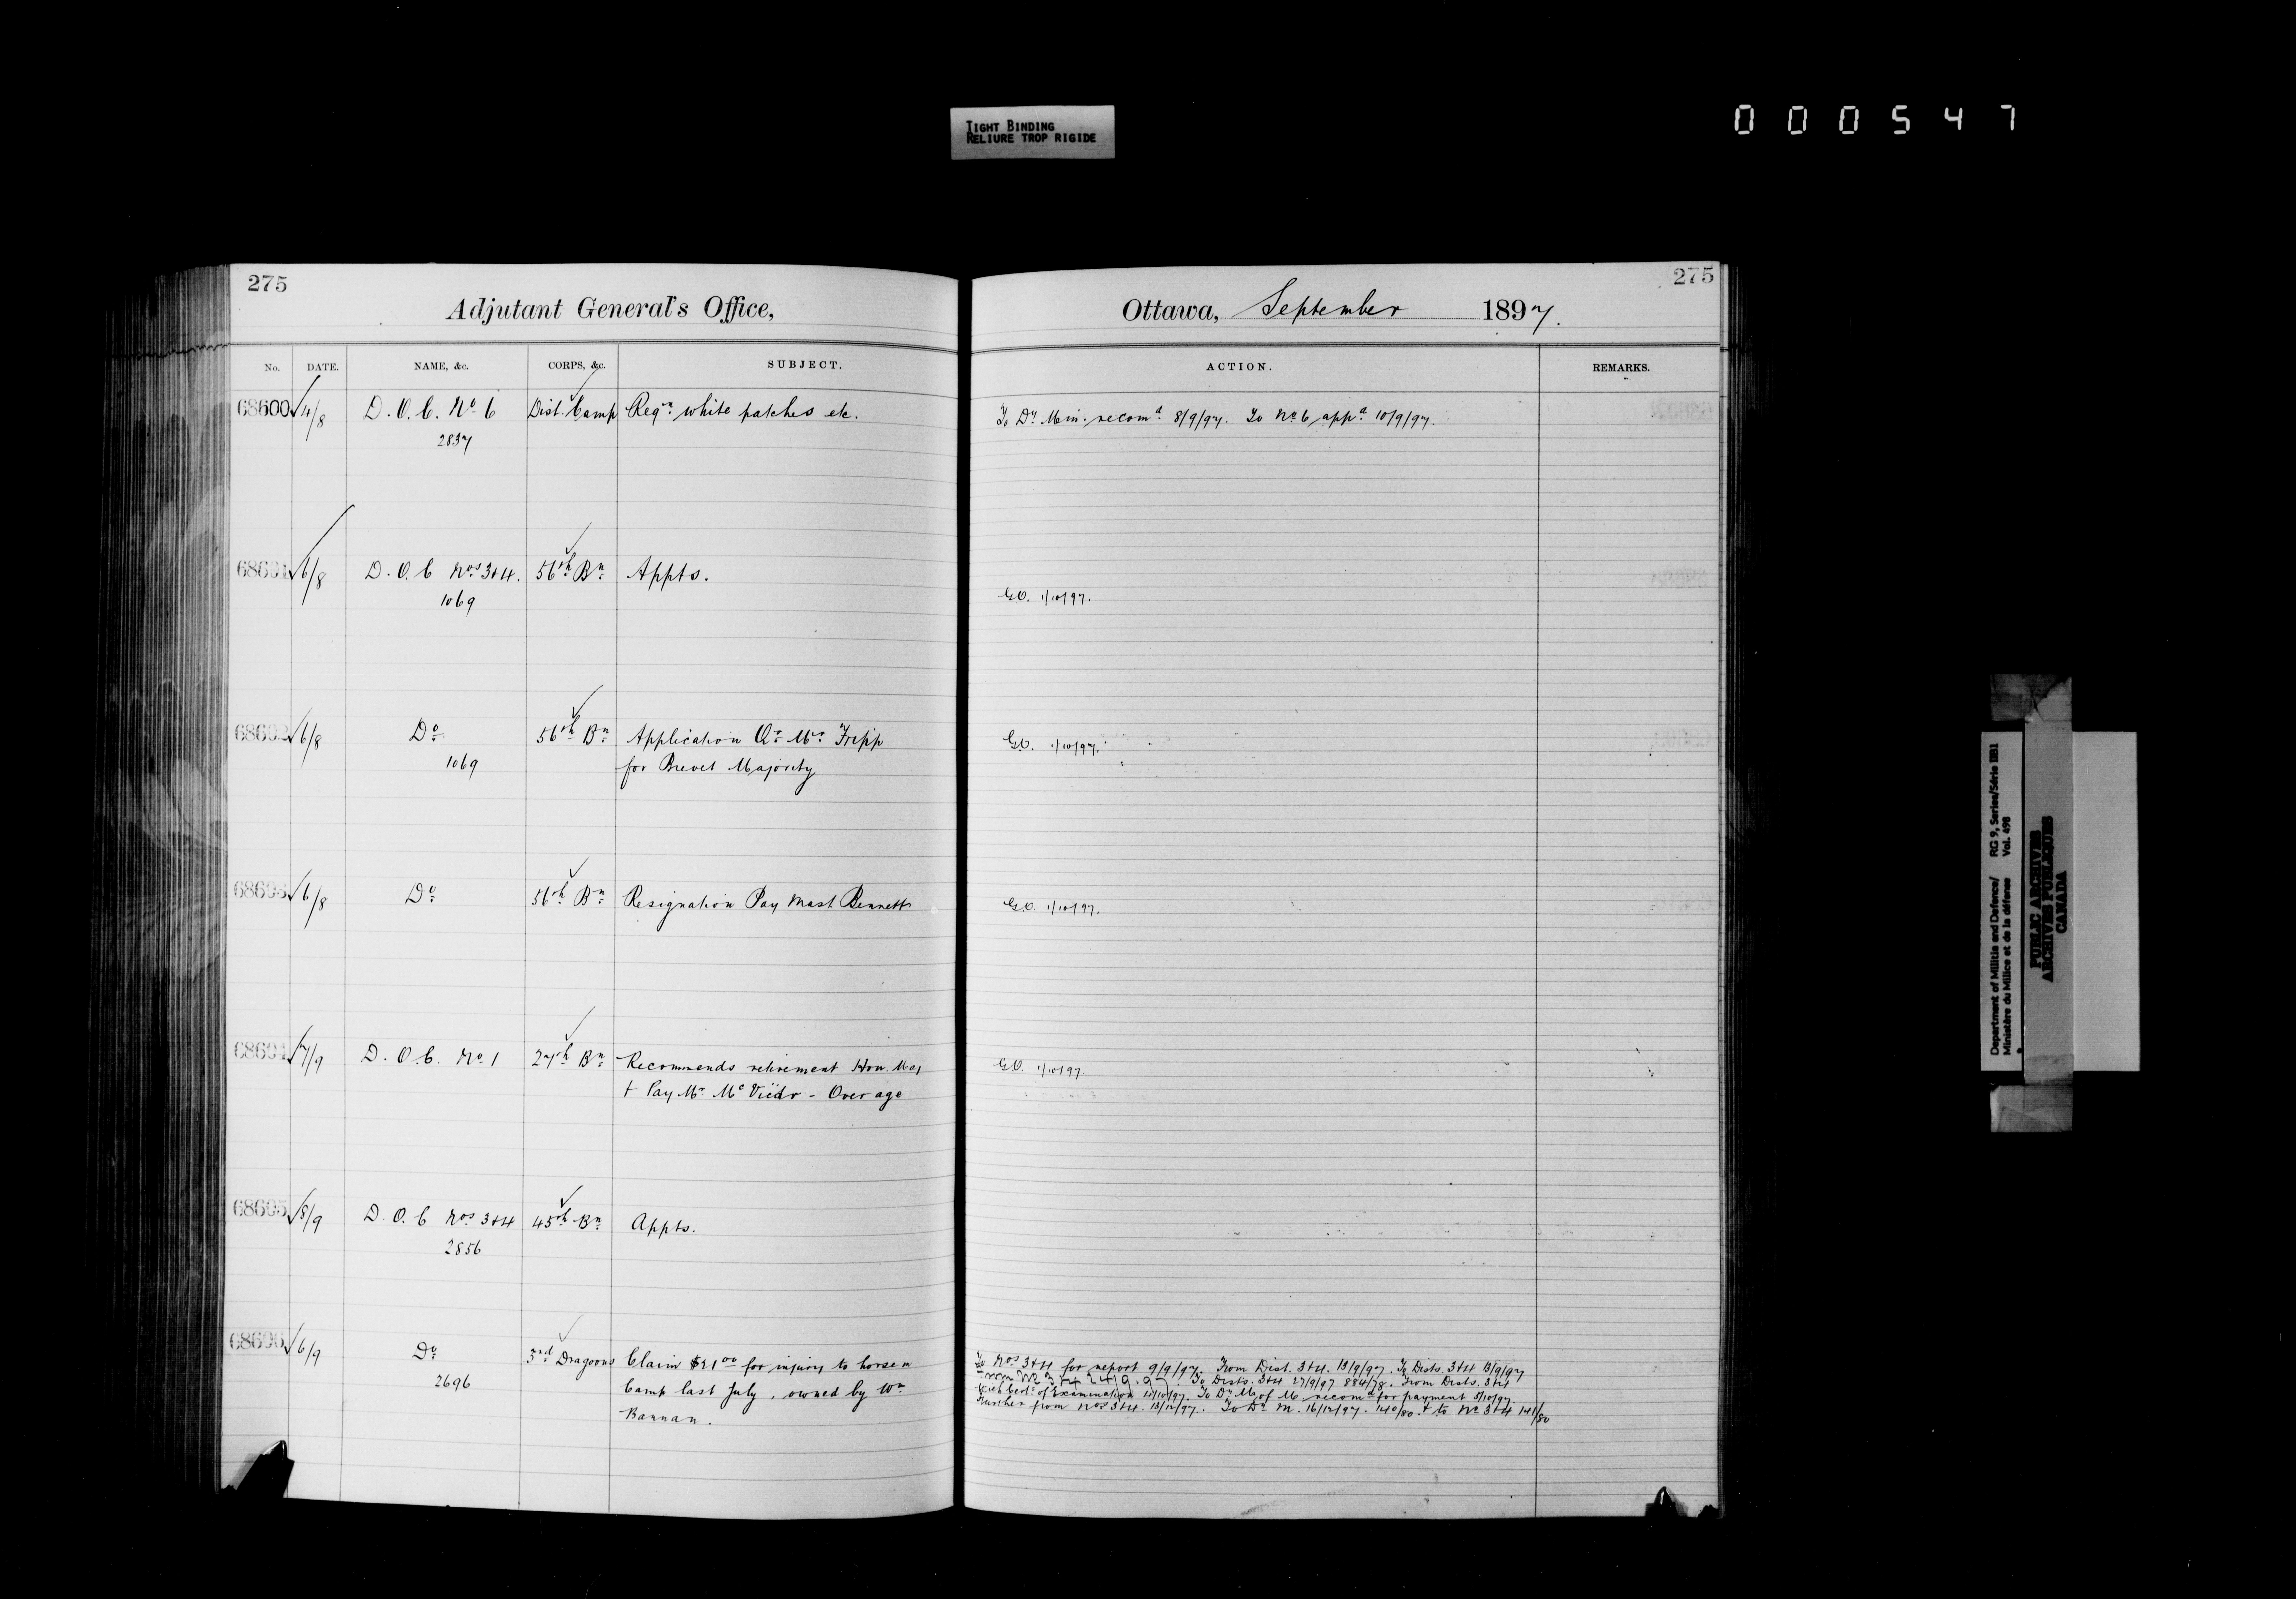 TIGHT BINDING
RELIURE TROP RIGIDE
000547
275
Adjutant General's Office,
No. DATE. NAME, &c. CORPS, &c. SUBJECT.
68600 4/8 D. O. C. No 6 Dist. Camp Reqn. white patches etc.
2837
68601 6/8 D. O. C Nos 3+4. 56th Bn Appts.
1069
68602 6/8 Do 56th Bn Application Qr. Mr. Fripp
1069 for Brevet Majority
68603 6/8 Do 56th Bn Resignation Pay Mast. Bennett
68604 7/9 D. O. C. No. 1 27th Bn Recommends retirement Hon. Maj
+ Pay Mr. - Over age
68605 8/9 D. O. C Nos 3+4 45th Bn Appts.
2856
68606 6/9 Do 3rd Dragoons Claim $21 00 for injury to horse in
2696 Camp last July, owned by Wm
Bannan.
275
Ottawa, September 1897.
ACTION. REMARKS.
To Dy. Min. recomd. 8/9/97. To No. 6 appd. 10/9/97.
G.O. 1/10/97.
G.O. 1/10/97.
G.O. 1/10/97.
G.O. 1/10/97
To Nos 3+4 for report 9/9/97. From Dist. 3+4. 13/9/97. To Dists. 3+4 13/9/97
From Nos 3+4 24.9.97. To Dists. 3+4 27/9/97 884/78. From Dists. 3+4
with of Examination 11/10/97. To Dy. M. of M. recomd for payment 5/10/97
Further from Nos 3+4. 13/12/97. To Dy. M. 16/12/97. 140/80. + to No. 3+4 141/80
Department of Militia and Defence/ RG 9, Series/Série IIB1
Ministère du Milice et de la défense Vol. 498
PUBLIC ARCHIVES
ARCHIVES PUBLIQUES
CANADA